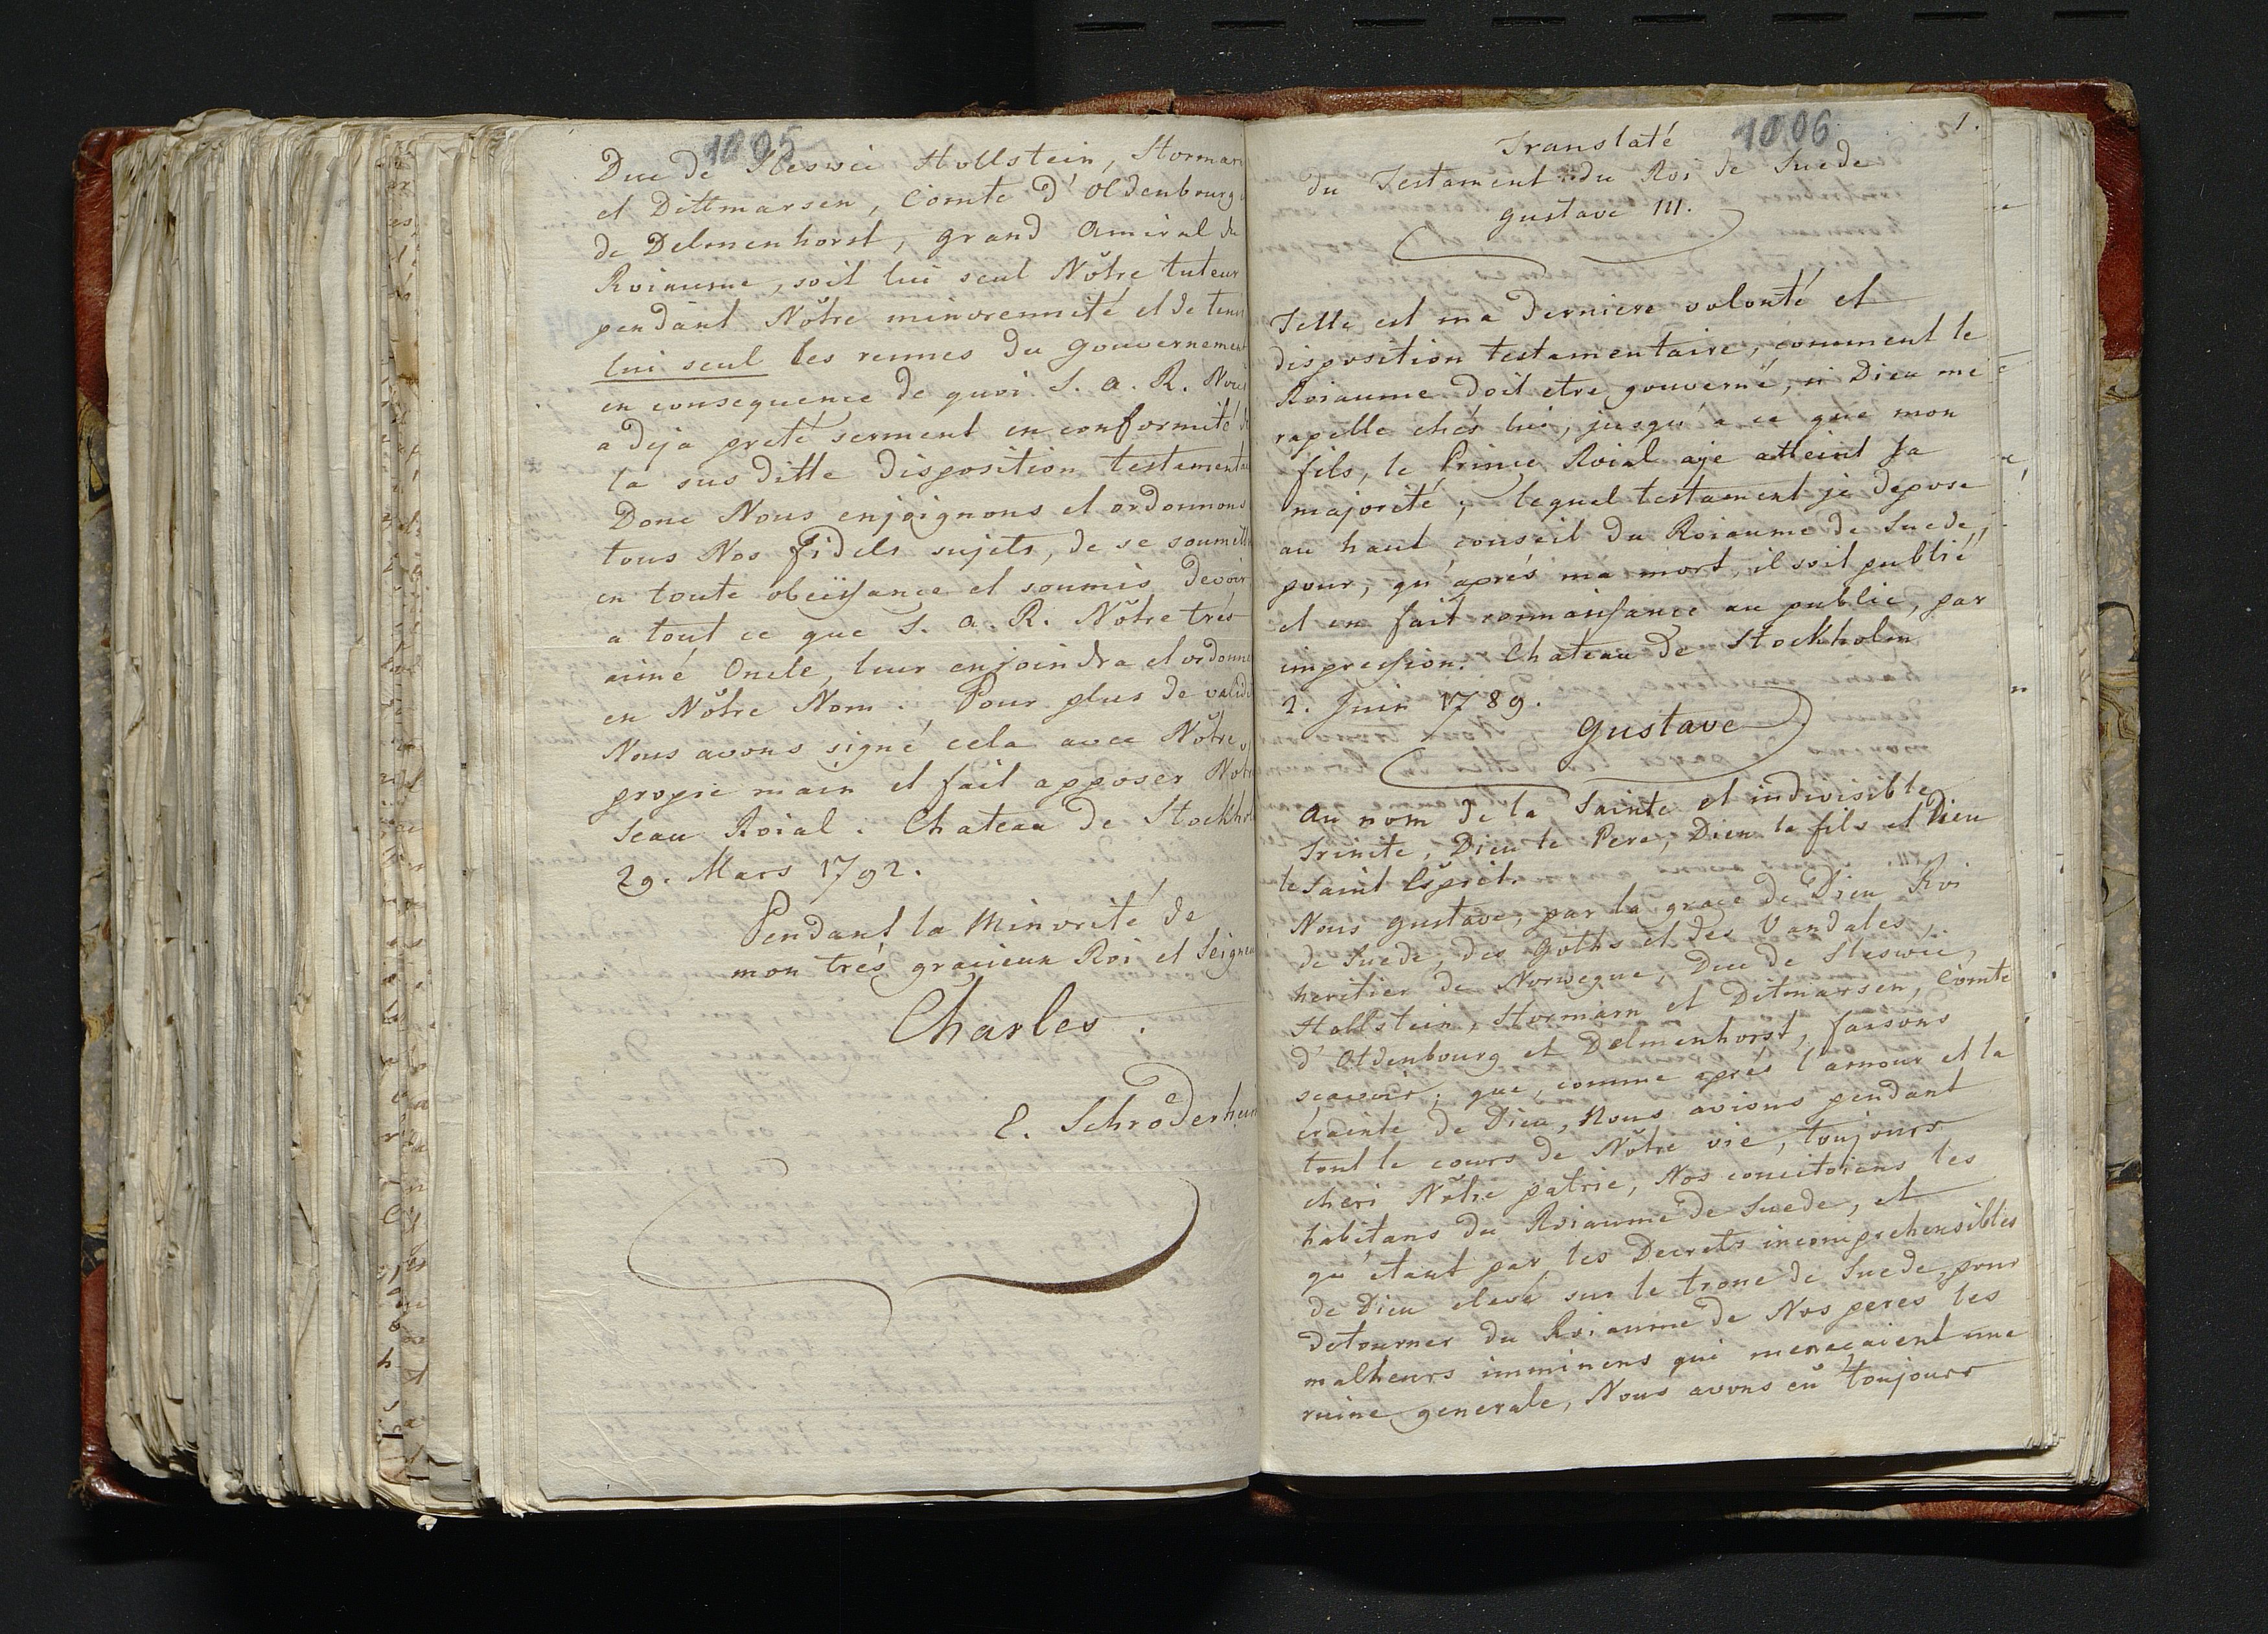 1005
Duc de Sleswic Hollstein, Stormarn
et Dittmarsen, Comte d'Oldenbourg
de Delmenhorst, grand Amiral du
Roiaume, soit lui seul Nôtre tuteur
pendant Nôtre minorennité et de tenir
lui seul les rennes du gouvernement
en consequence de quoi S. A. R. Nous
a deja preté serment en conformité de
la sus ditte disposition testamentai
Donc Nous enjoignons et ordonnons
tous Nos fidels sujets, de se soumett
en toute obeissance et soumis devoir
a tout ce que S. A. R. Nôtre trés
aimé Oncle, leur enjoindra et ordonne
en Nôtre Nom. Pour plus de validi
Nous avons signé cela avec Nôtre
propre main et fait apposer Notr
Seau Roial. Chateau de Stockhol
29. Mars 1792.
Pendant la Minorité de
mon trés gracieux Roi et Seigneu
Charles.
E. Schröderhei
1006
1.
Translaté
du Testament du Roi de Suede
gustave III.
Telle est ma derniere volonté et
disposition testamentaire, comment le
Roiaume doit etre gouverné, si Dieu me
rapelle chés lui, jusqu'a ce que mon
fils, le Prince Roial aje atteint sa
majorité; lequel testament je depose
au haut conseil du Roiaume de Suede,
pour, qu'aprés ma mort, il soit publié
et en fait connaissance au public, par
impression. Chateau de Stockholm
2. Juin 1789.
gustave
Au nom de la Sainte et indivisible
Trinite, Dieu le Pere, Dieu le fils et Dieu
le Saint Esprit.
Nous gustave, par la grace de Dieu Roi
de Suede, des goths et des Vandales,
heritier de Norvegue, Duc de Sleswic,
Hollstein, Stormarn et Ditmarsen, Comte
d'Oldenbourg et Delmenhorst, faisons
scavoir; que, comme aprés l'amour et la
crainte de Dieu, Nous avions pendant
tout le cours de Nôtre vie, toujours
cheri Nôtre patrie, Nos concitoiens les
habitans du Roiaume de Suede, et
qu'etant par les Decrets incomprehensibles
de Dieu elevé sur le trone de Suede, pour
detourner du Roiaume de Nos peres les
malheurs imminens qui menaçaient une
ruine generale, Nous avons eû toujours